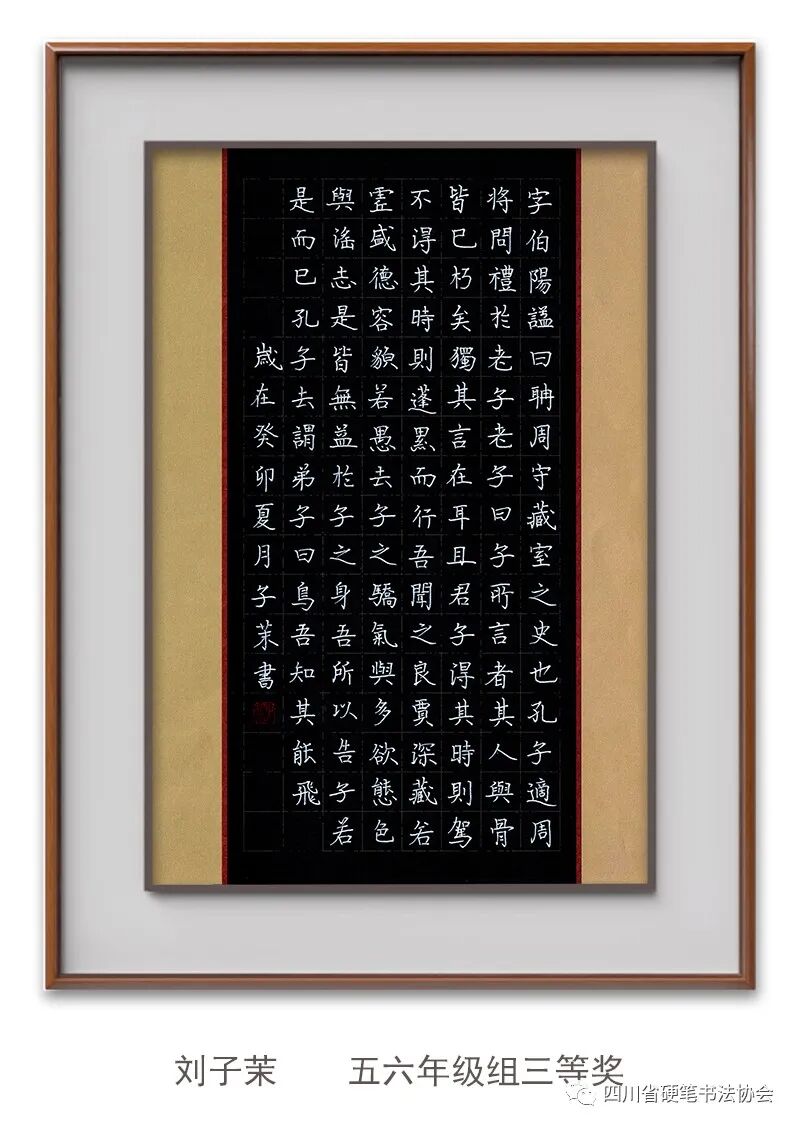 字伯陽謚曰聃周守藏室之史也孔子適周
将問禮於老子老子曰子所言者其人與骨
皆已朽矣獨其言在耳且君子得其時則駕
不得其時則蓬累而行吾聞之良賈深藏若
虛盛德容貌若愚去子之驕氣與多欲態色
與淫志是皆無益於子之身吾所以告子若
是而已孔子去謂弟子曰鳥吾知其能飛
歲在癸卯夏月子茉書
刘子茉 五六年级组三等奖
四川省硬笔书法协会